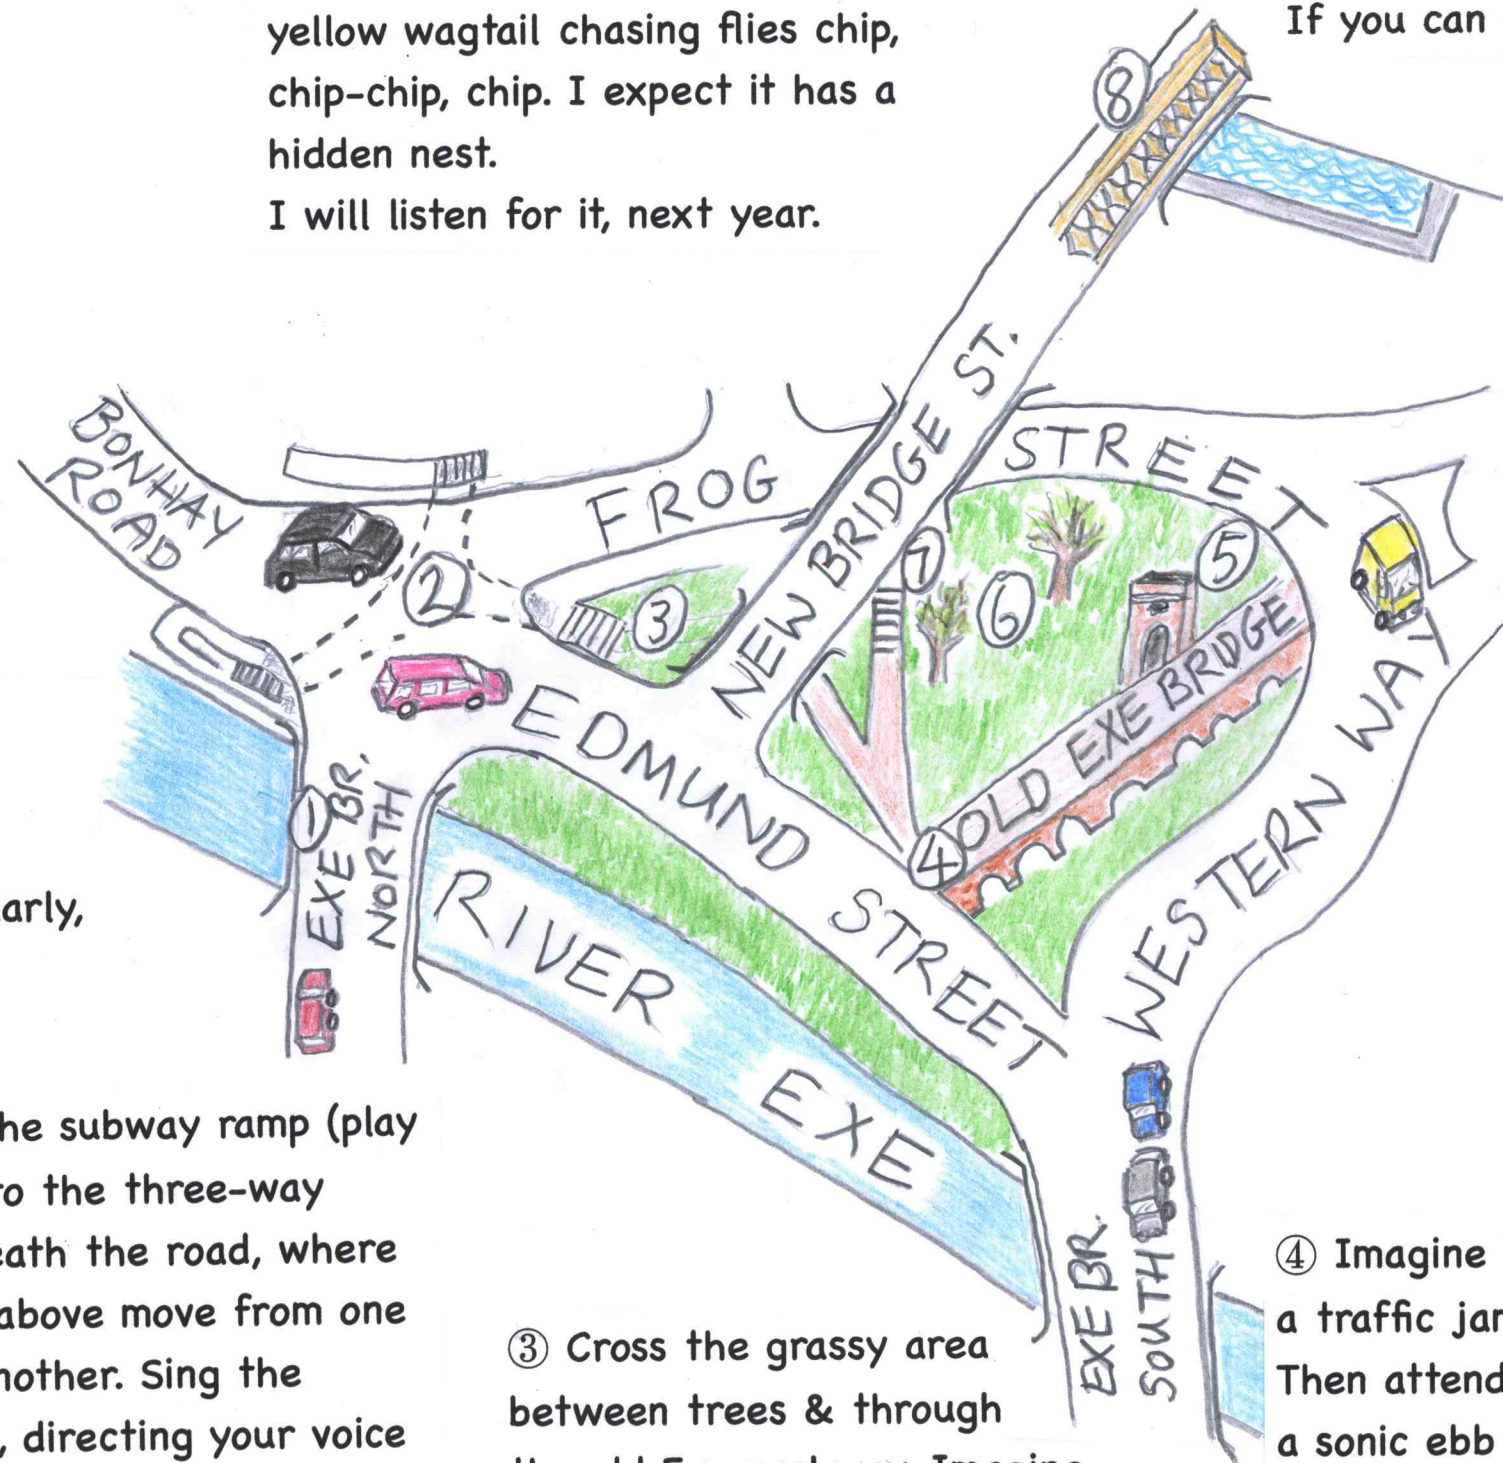 yellow wagtail chasing flies chip,
chip-chip, chip. I expect it has a
hidden nest.
I will listen for it, next year.
If you can
8
BONHAY
ROAD
FROG
STREET
NEW BRIDGE ST.
2
3
7
6
5
OLD EXE BRIDGE
4
EDMUND STREET
WESTERN WAY
1
EXE BR.
NORTH
RIVER EXE
EXE BR.
SOUTH
arly,
he subway ramp (play
o the three-way
eath the road, where
above move from one
nother. Sing the
, directing your voice
③ Cross the grassy area
between trees & through
④ Imagine
a traffic jar
Then attend
a sonic ebb